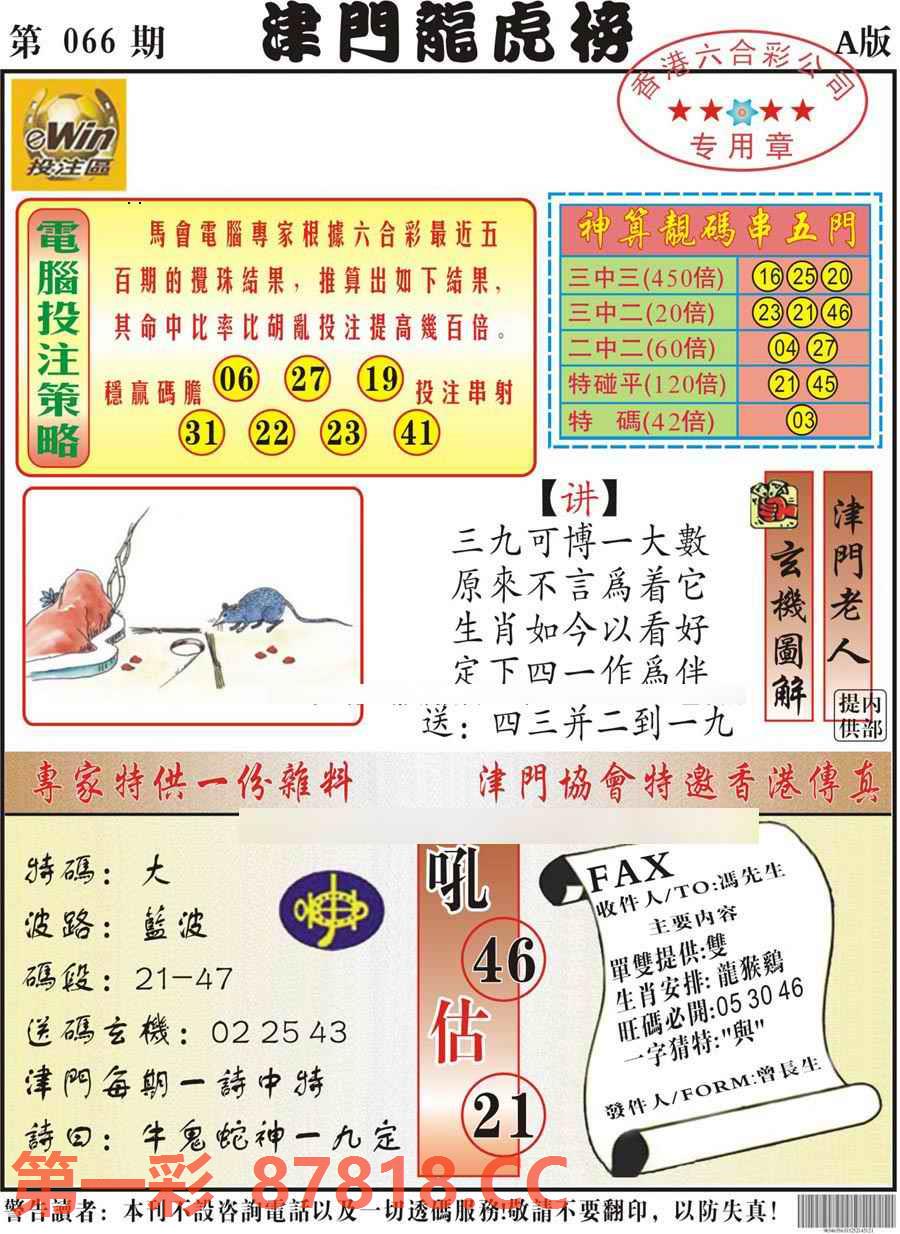 第 066 期
津門龍虎榜
A版
香港六合彩公司
专用章
eWin
投注區
電腦投注策略
馬會電腦專家根據六合彩最近五
百期的攪珠結果，推算出如下結果，
其命中比率比胡亂投注提高幾百倍。
穩贏碼膽 06 27 19 投注串射
31 22 23 41
神算靚碼串五門
三中三(450倍) 16 25 20
三中二(20倍) 23 21 46
二中二(60倍) 04 27
特碰平(120倍) 21 45
特 碼(42倍) 03
【讲】
三九可博一大數
原來不言爲着它
生肖如今以看好
定下四一作爲伴
送：四三并二到一九
玄機圖解
津門老人
内部提供
專家特供一份雜料
津門協會特邀香港傳真
特碼：大
波路：藍波
碼段：21—47
送碼玄機：02 25 43
津門每期一詩中特
詩曰：牛鬼蛇神一九定
吼
46
估
21
FAX
收件人/TO:馮先生
主要内容
單雙提供:雙
生肖安排:龍猴鷄
旺碼必開:05 30 46
一字猜特:"與"
發件人/FORM:曾長生
第一彩 87818.CC
警告讀者：本刊不設咨詢電話以及一切透碼服務!敬請不要翻印，以防失真!